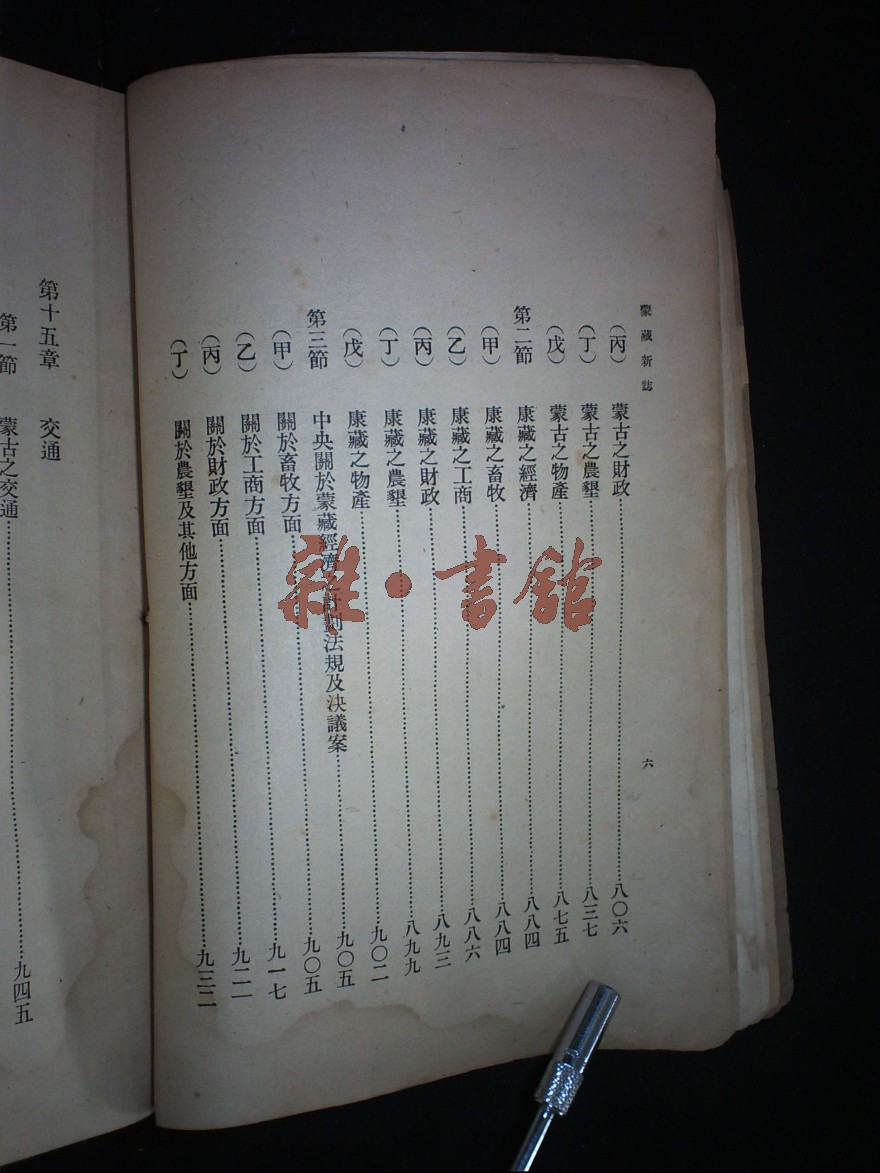 蒙藏新誌
六
（丙） 蒙古之財政 八〇六
（丁） 蒙古之農墾 八三七
（戊） 蒙古之物產 八七五
第二節 康藏之經濟 八八四
（甲） 康藏之畜牧 八八四
（乙） 康藏之工商 八八六
（丙） 康藏之財政 八九三
（丁） 康藏之農墾 八九九
（戊） 康藏之物產 九〇二
第三節 中央關於蒙藏經濟之計劃法規及決議案 九〇五
（甲） 關於畜牧方面 九一七
（乙） 關於工商方面 九二一
（丙） 關於財政方面
（丁） 關於農墾及其他方面 九三二
第十五章 交通
第一節 蒙古之交通 九四五
雜·書館